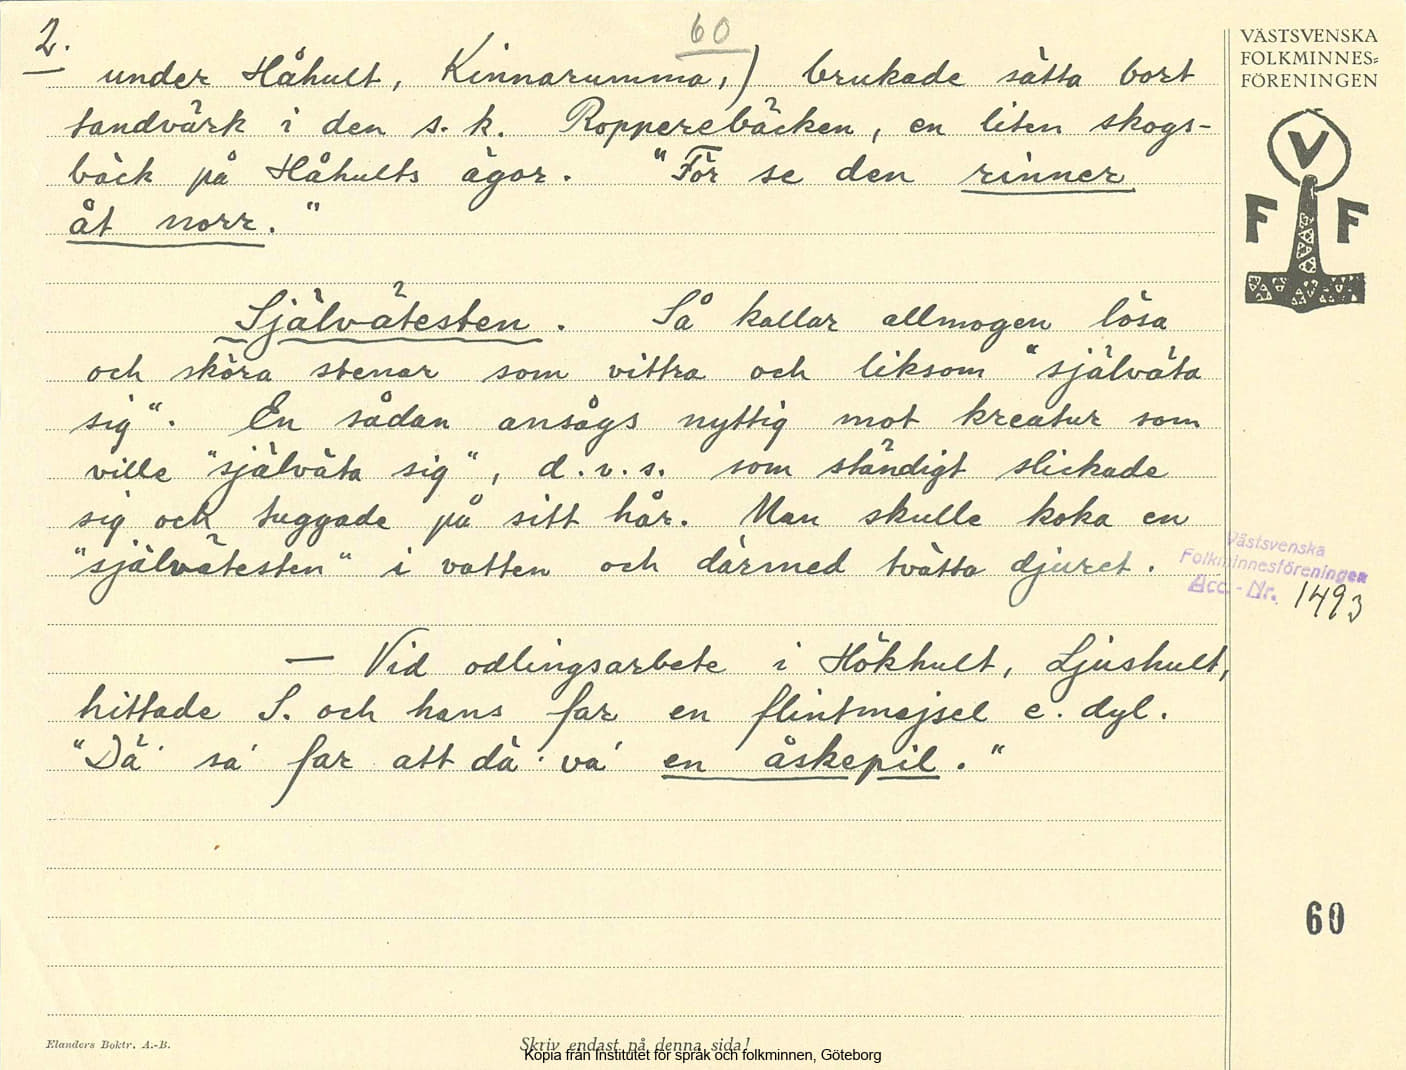 2.
60
under Håhult, Kinnarumma,) brukade sätta bort
tandvärk i den s.k. Ropperebäcken, en liten skogs-
bäck på Håhults ägor. "För se den rinner
åt norr."
Självätesten. Så kallar allmogen lösa
och sköra stenar som vittra och liksom "själväta
sig". En sådan ansågs nyttig mot kreatur som
ville "själväta sig", d.v.s. som ständigt slickade
sig och tuggade på sitt hår. Man skulle koka en
"självätesten" i vatten och därmed tvätta djuret.
— Vid odlingsarbete i Hökhult, Ljushult,
hittade S. och hans far en flintmejsel e. dyl.
"Dä' sa' far att dä' va' en åskepil."
VÄSTSVENSKA
FOLKMINNES=
FÖRENINGEN
V
F F
Västsvenska
Folkminnesföreningen
Acc.-Nr. 1493
60
Elanders Boktr. A.-B.
Skriv endast på denna sida!
Kopia från Institutet för språk och folkminnen, Göteborg